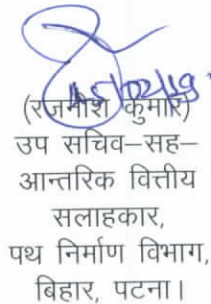 15/02/19
(रजनीश कुमार)
उप सचिव–सह–
आन्तरिक वित्तीय
सलाहकार,
पथ निर्माण विभाग,
बिहार, पटना।